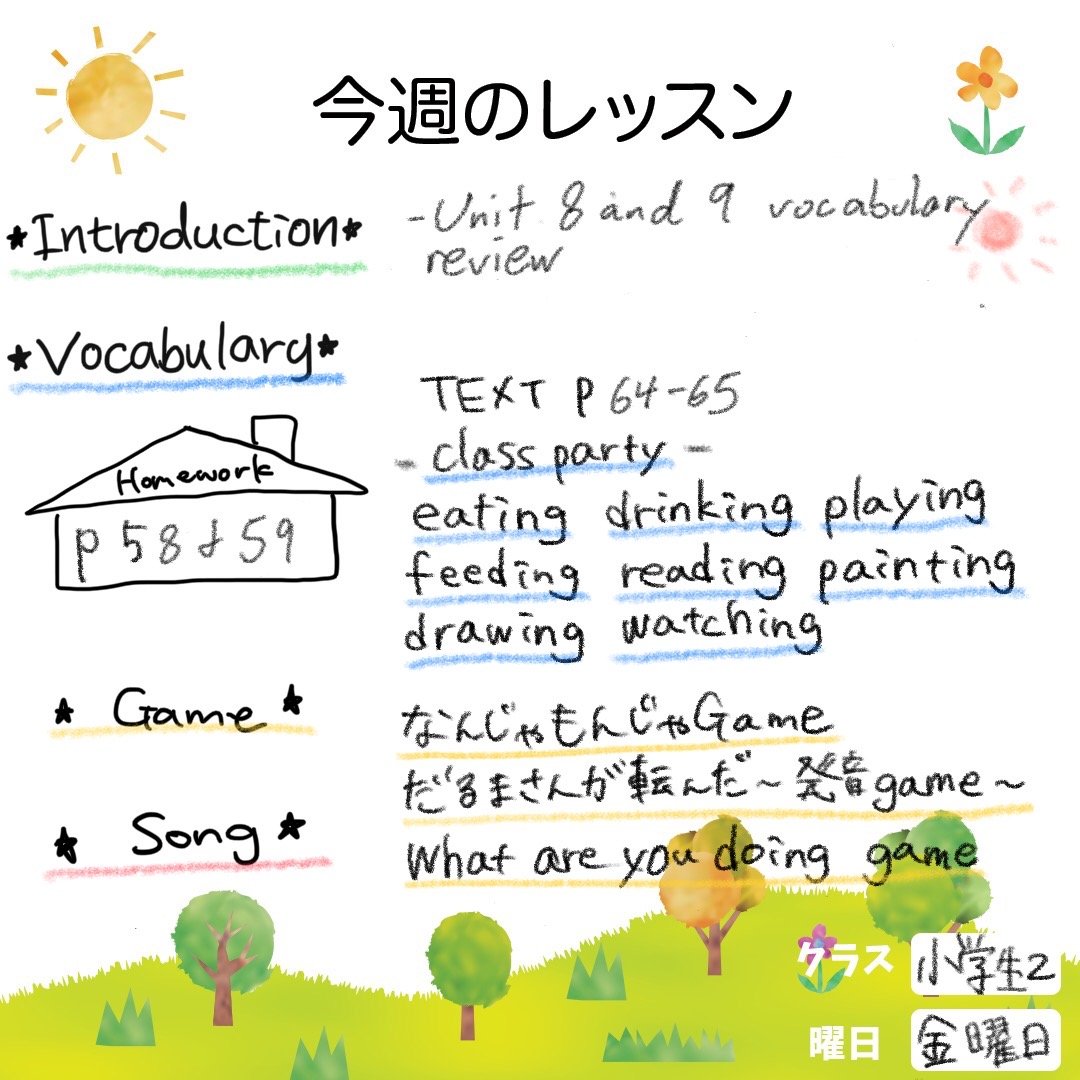 今週のレッスン
★Introduction★
-Unit 8 and 9 vocabulary
review
★Vocabulary★
TEXT p 64-65
- class party -
eating drinking playing
feeding reading painting
drawing watching
Homework
p 58 & 59
★ Game ★
なんじゃもんじゃGame
だるまさんが転んだ～発音game～
What are you doing game
★ Song ★
クラス 小学生2
曜日 金曜日